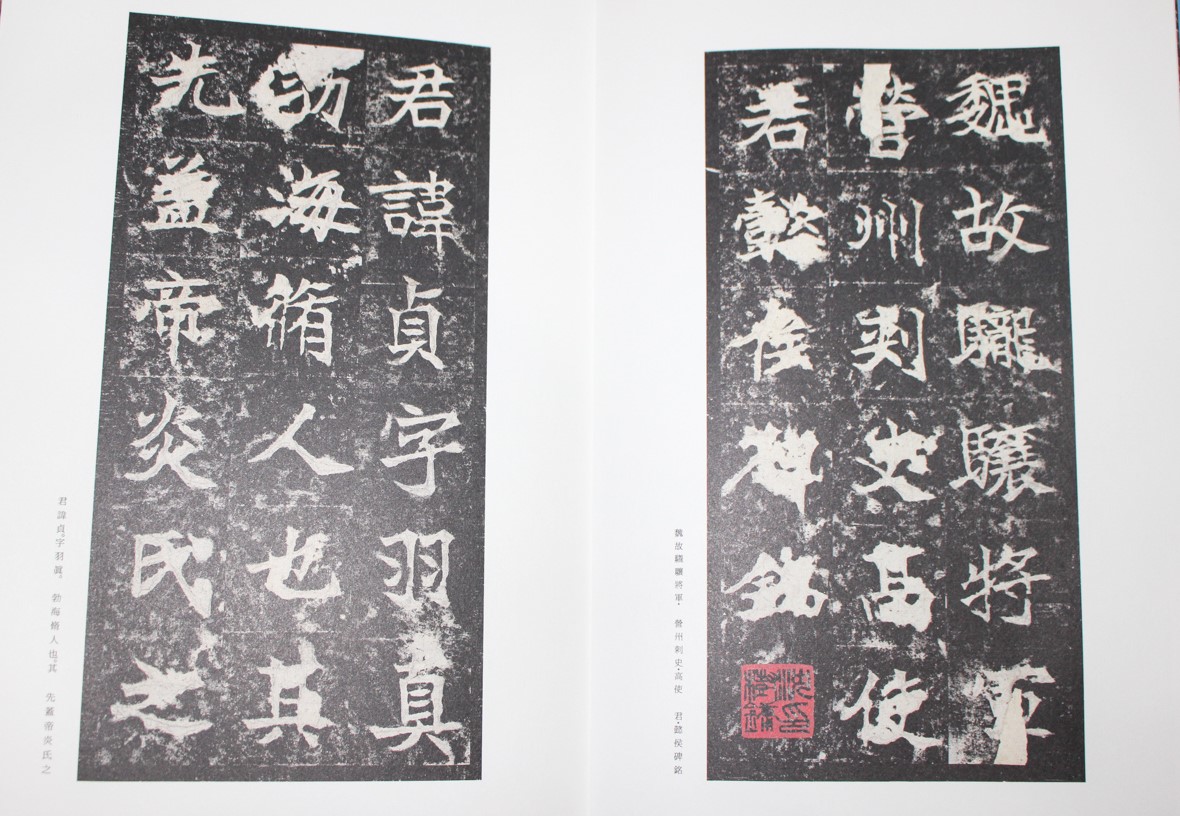 魏故䮾驤將軍
營州刺史高使
君懿侯碑銘
魏故䮾驤將軍・營州刺史・高使 君・懿侯碑銘
君諱貞字羽真
勃海脩人也其
先蓋帝炎氏之
君諱貞。字羽眞。 勃海脩人也。其 先蓋帝炎氏之